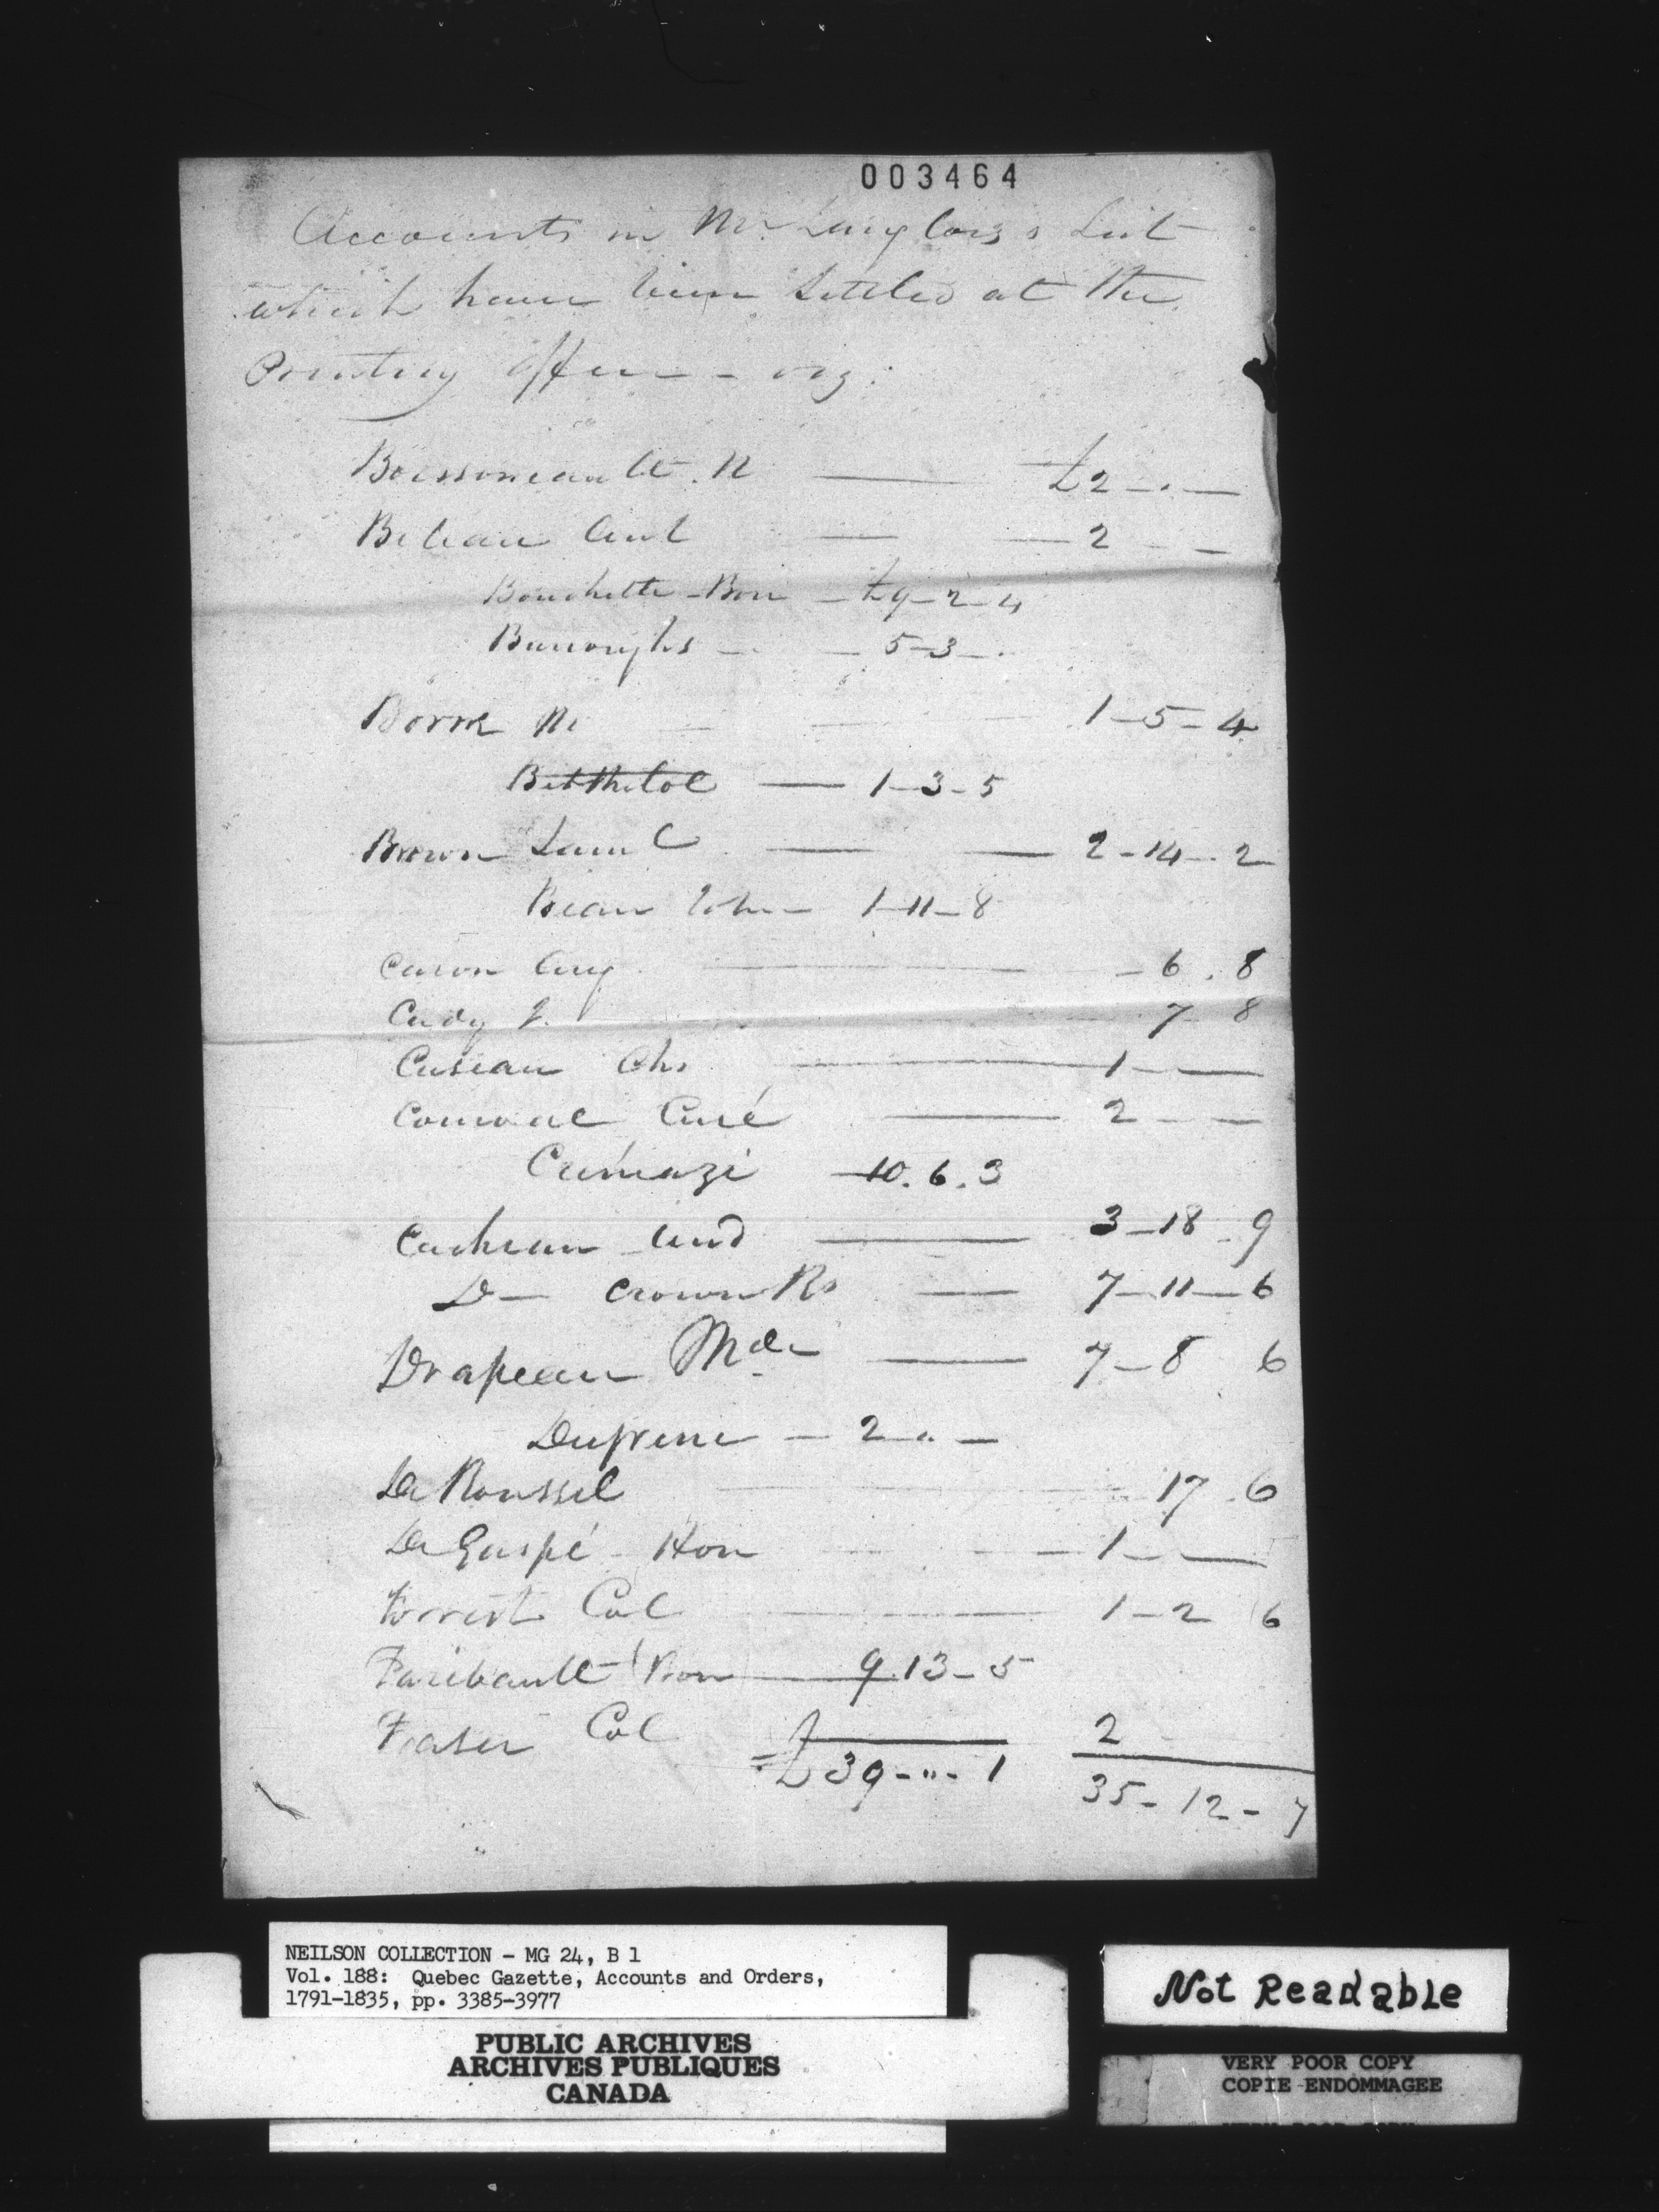 003464
Accounts in Mr. Langlois's List
which have been Settled at the
Printing Office - viz:
Boissoneault. N — £2 - . -
Beleau Ant — 2 - -
Bouchette - Bon - £9 - 2 - 4
Burroughs - - 5 - 3 - .
Borne M - 1 - 5 - 4
Berthelot — 1 - 3 - 5
Brown Saml — 2 - 14 - 2
Bean John - 1 - 11 - 8
Caron Aug — 6 . 8
Cady J. — 7 - 8
Caseau Chs — 1 - —
Couroval Curé — 2 - -
Crémazi - 10 . 6 . 3
Cochran And — 3 - 18 - 9
Do — Crown Rs — 7 - 11 - 6
Drapeau Mde — 7 - 8 6
Dufrene - 2 " -
De Roussel — 17 . 6
De Gaspé - Hon — 1 - —
Forrest Col — 1 - 2 6
Faribault Bon — 9 . 13 - 5
Fraser Col 2
£39 - " - 1 35 - 12 - 7
NEILSON COLLECTION - MG 24, B 1
Vol. 188: Quebec Gazette, Accounts and Orders,
1791-1835, pp. 3385-3977
PUBLIC ARCHIVES
ARCHIVES PUBLIQUES
CANADA
Not Readable
VERY POOR COPY
COPIE ENDOMMAGEE